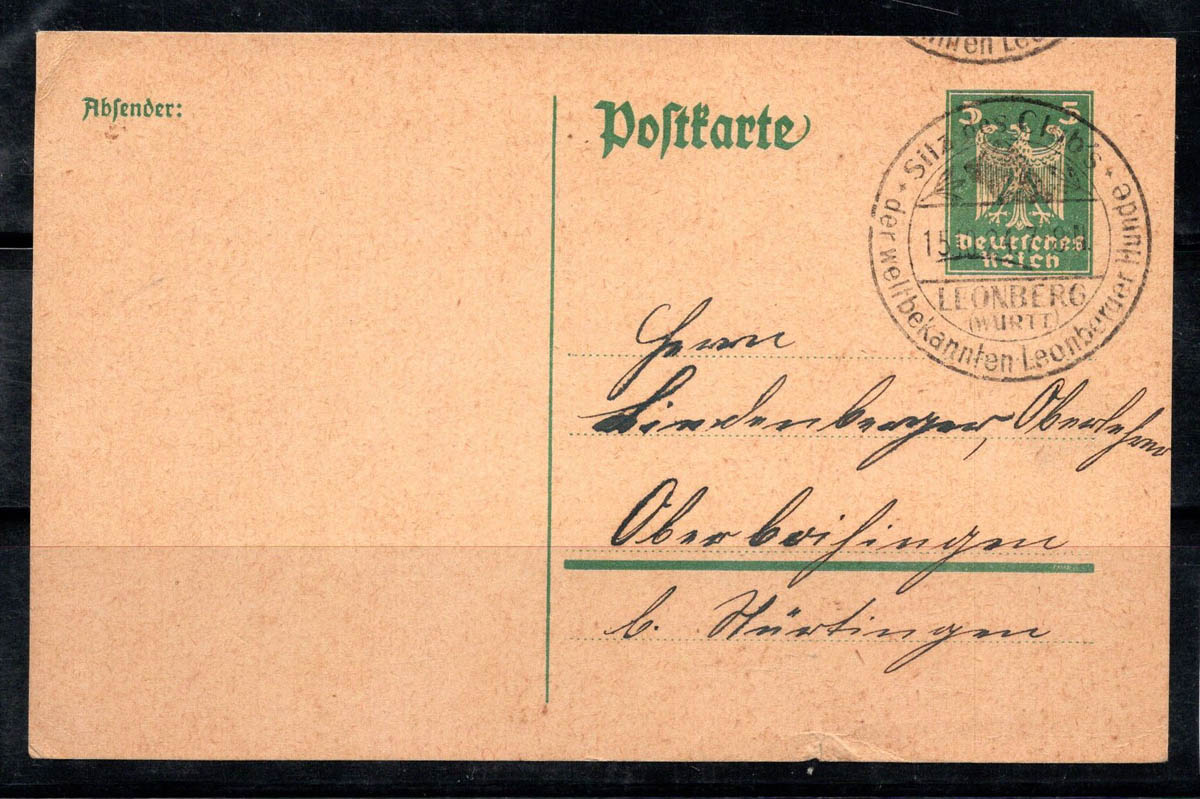 nten Leo
Absender:
Postkarte
5 5
Deutsches
Reich
Sitz des Club's
der weltbekannten Leonberger Hunde
15
8-N
LEONBERG
(WÜRTT.)
Herrn
Lindenberger, Oberlehrer
Oberboihingen
b. Nürtingen